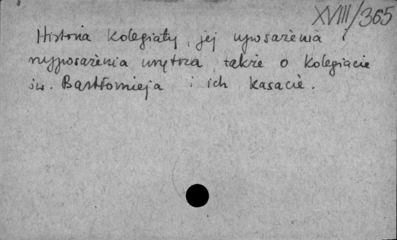 XVIII/365
Historia kolegiaty, jej uposażenia i
wyposażenia wnętrza, także o kolegiacie
św. Bartłomieja i ich kasacie.